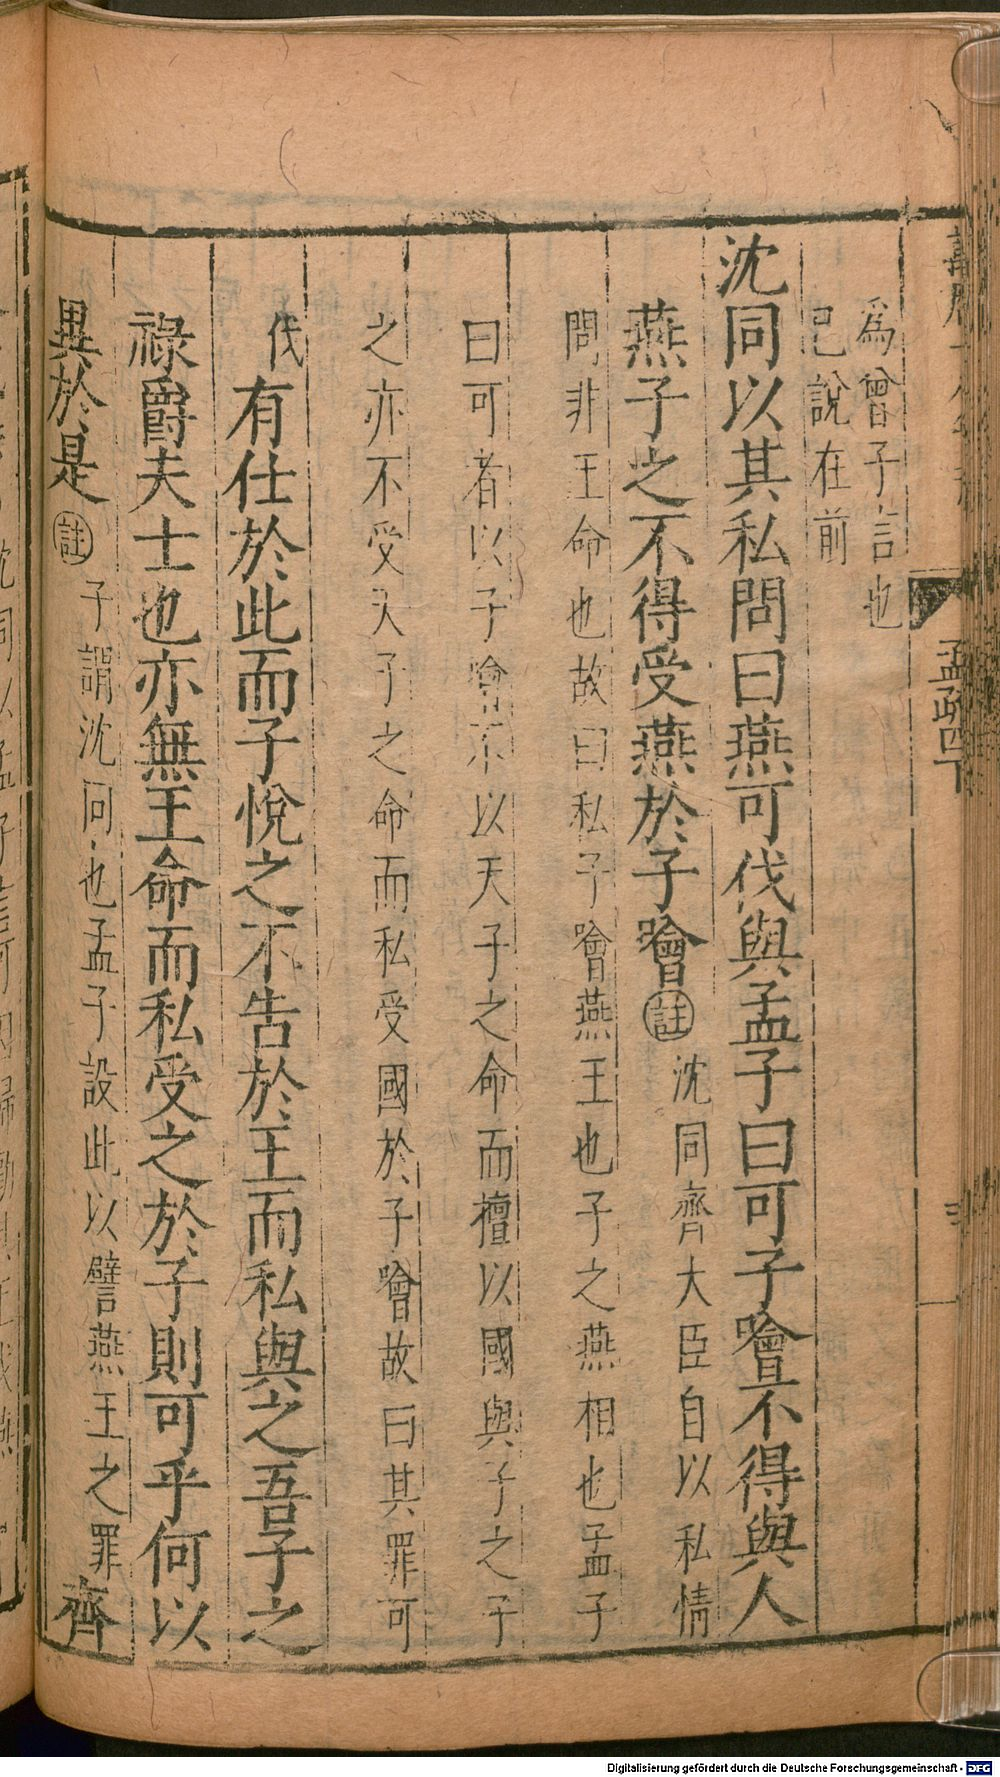 孟疏四下
為曾子言也
已說在前
沈同以其私問曰燕可伐與孟子曰可子噲不得與人
燕子之不得受燕於子噲註沈同齊大臣自以私情
問非王命也故曰私子噲燕王也子之燕相也孟子
曰可者以子噲不以天子之命而擅以國與子之子
之亦不受天子之命而私受國於子噲故曰其罪可
伐
有仕於此而子悅之不告於王而私與之吾子之
祿爵夫士也亦無王命而私受之於子則可乎何以
異於是註子謂沈同也孟子設此以譬燕王之罪齊
Digitalisierung gefördert durch die Deutsche Forschungsgemeinschaft - DFG